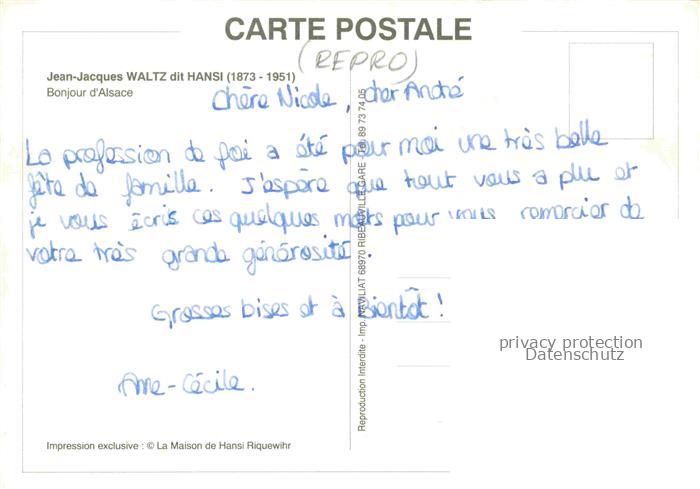 CARTE POSTALE
(REPRO)
Jean-Jacques WALTZ dit HANSI (1873 - 1951)
Bonjour d'Alsace
Chère Nicole, cher André
La profession de foi a été pour moi une très belle
fête de famille. J'espère que tout vous a plu et
je vous écris ces quelques mots pour vous remercier de
votre très grande générosité.
Grosses bises et à Bientôt !
Anne-Cécile.
Reproduction Interdite - Imp. NAVILIAT 68970 RIBEAUVILLE GARE - Tél. 89 73 74 05
privacy protection
Datenschutz
Impression exclusive : © La Maison de Hansi Riquewihr